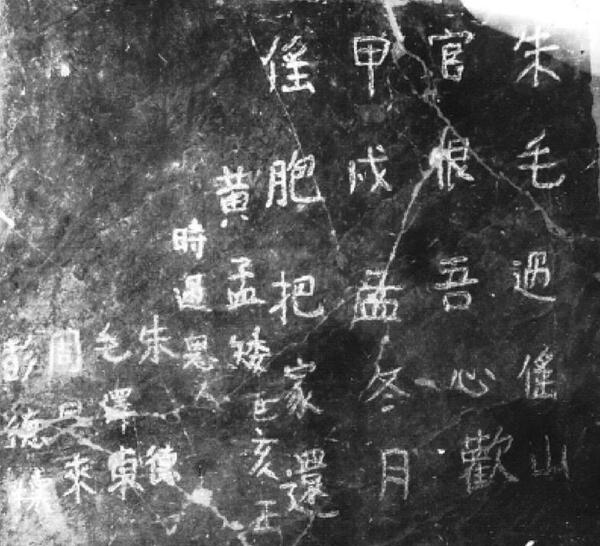 朱毛過傜山
官恨吾心歡
甲戌孟冬月
傜胞把家還
黃孟矮
亥正
時遇恩人
朱德
毛澤東
周恩來
彭德懷